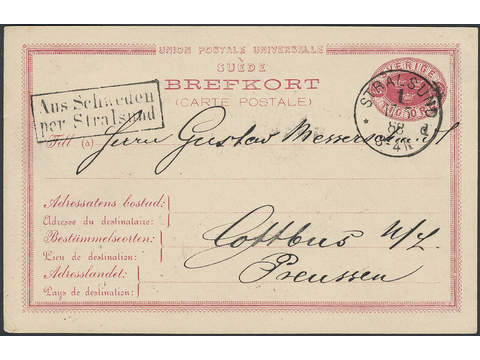 UNION POSTALE UNIVERSELLE
SUÈDE
BREFKORT
(CARTE POSTALE)
SVERIGE
TIO ÖRE
STRALSUND
Aus Schweden
per Stralsund
Till (à) Herrn Gustav Messerschmidt
Adressatens bostad:
Adresse du destinataire:
Bestämmelseorten:
Lieu de destination:
Cottbus N/L.
Adresslandet:
Pays de destination:
Preussen